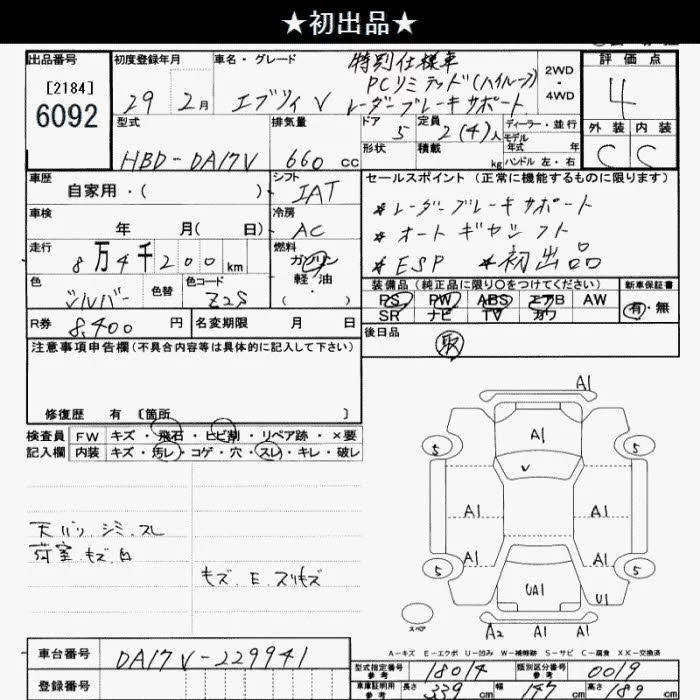 ★初出品★
出品番号 初度登録年月 車名・グレード 特別仕様車 評価点
[2184] PCリミテッド(ハイルーフ) 2WD
6092 29 2月 エブリイ V レーダーブレーキサポート ・4WD 4
型式 排気量 ドア 5 定員 2(4)人 ディーラー・並行 外装 内装
モデル年式 年
HBD-DA17V 660 cc 形状 積載 kg ハンドル 左・右 C C
車歴 シフト セールスポイント (正常に機能するものに限ります)
自家用・( ) IAT *レーダーブレーキサポート
車検 冷房 *オートギヤシフト
年 月( 日) AC *ESP *初出品
走行 燃料
8万4千200km ガソリン
軽・油
( ・ )
色 色替 色コード 装備品 (純正品に限り○をつけてください) 新車保証書
シルバー Z2S PS PW ABS エアB AW 有・無
SR ナビ TV カワ
R券 8,400 円 名変期限 月 日 後日品
取
注意事項申告欄(不具合内容等は具体的に記入して下さい)
修復歴 有 [箇所 ]
検査員 FW キズ・飛石・ヒビ割・リペア跡・×要
記入欄 内装 キズ・汚レ・コゲ・穴・スレ・キレ・破レ
天バリ.シミ.スレ
荷室.キズ.凹
キズ.E.スリキズ
A1
A1
5 5
V
A1 A1
A1 A1
5 5
UA1 U1
スペア
A2 A1 A1
A-キズ E-エクボ U-凹み W-補修跡 S-サビ C-腐食 XX-交換済
車台番号 DA17V-229941
型式指定番号 参考 18014 類別区分番号 参考 0019
登録番号
車庫証明用 参考 長さ 339 cm 幅 147 cm 高さ 189 cm